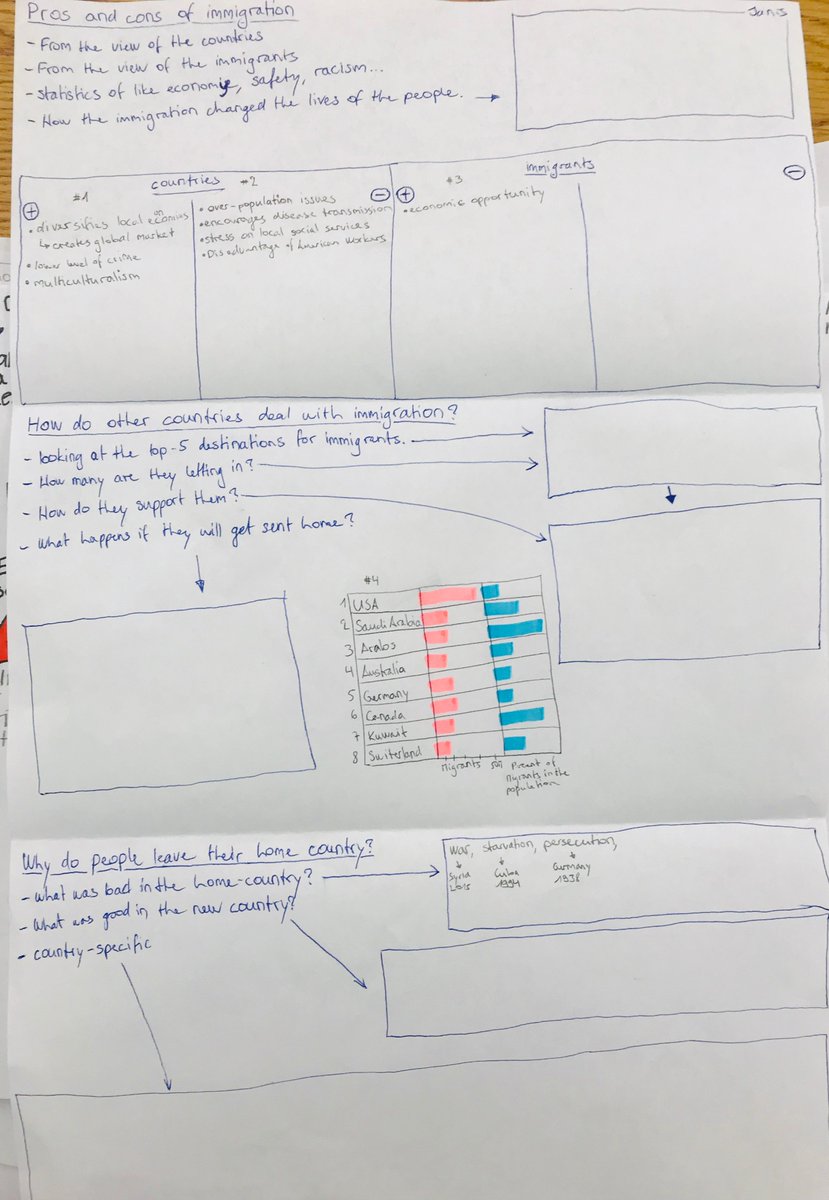 Pros and cons of immigration
Janis
- From the view of the countries
- From the view of the immigrants
- statistics of like economy, safety, racism...
- How the immigration changed the lives of the people.
#1 countries #2
#3 immigrants
+
• diversifies local economies
↳ creates global market
• lower level of crime
• multiculturalism
−
• over-population issues
• encourages disease transmission
• stress on local social services
• Disadvantage of American workers
+
• economic opportunity
−
How do other countries deal with immigration?
- looking at the top-5 destinations for immigrants.
- How many are they letting in?
- How do they support them?
- What happens if they will get sent home?
#4
1 USA
2 Saudi Arabia
3 Arabs
4 Australia
5 Germany
6 Canada
7 Kuwait
8 Suiterland
Migrants
Precent of
Migrants in the
population
Why do people leave their home country?
- what was bad in the home-country?
- What was good in the new country?
- country-specific
war, starvation, persecution,
Syria 2015
Cuba 1994
Germany 1938